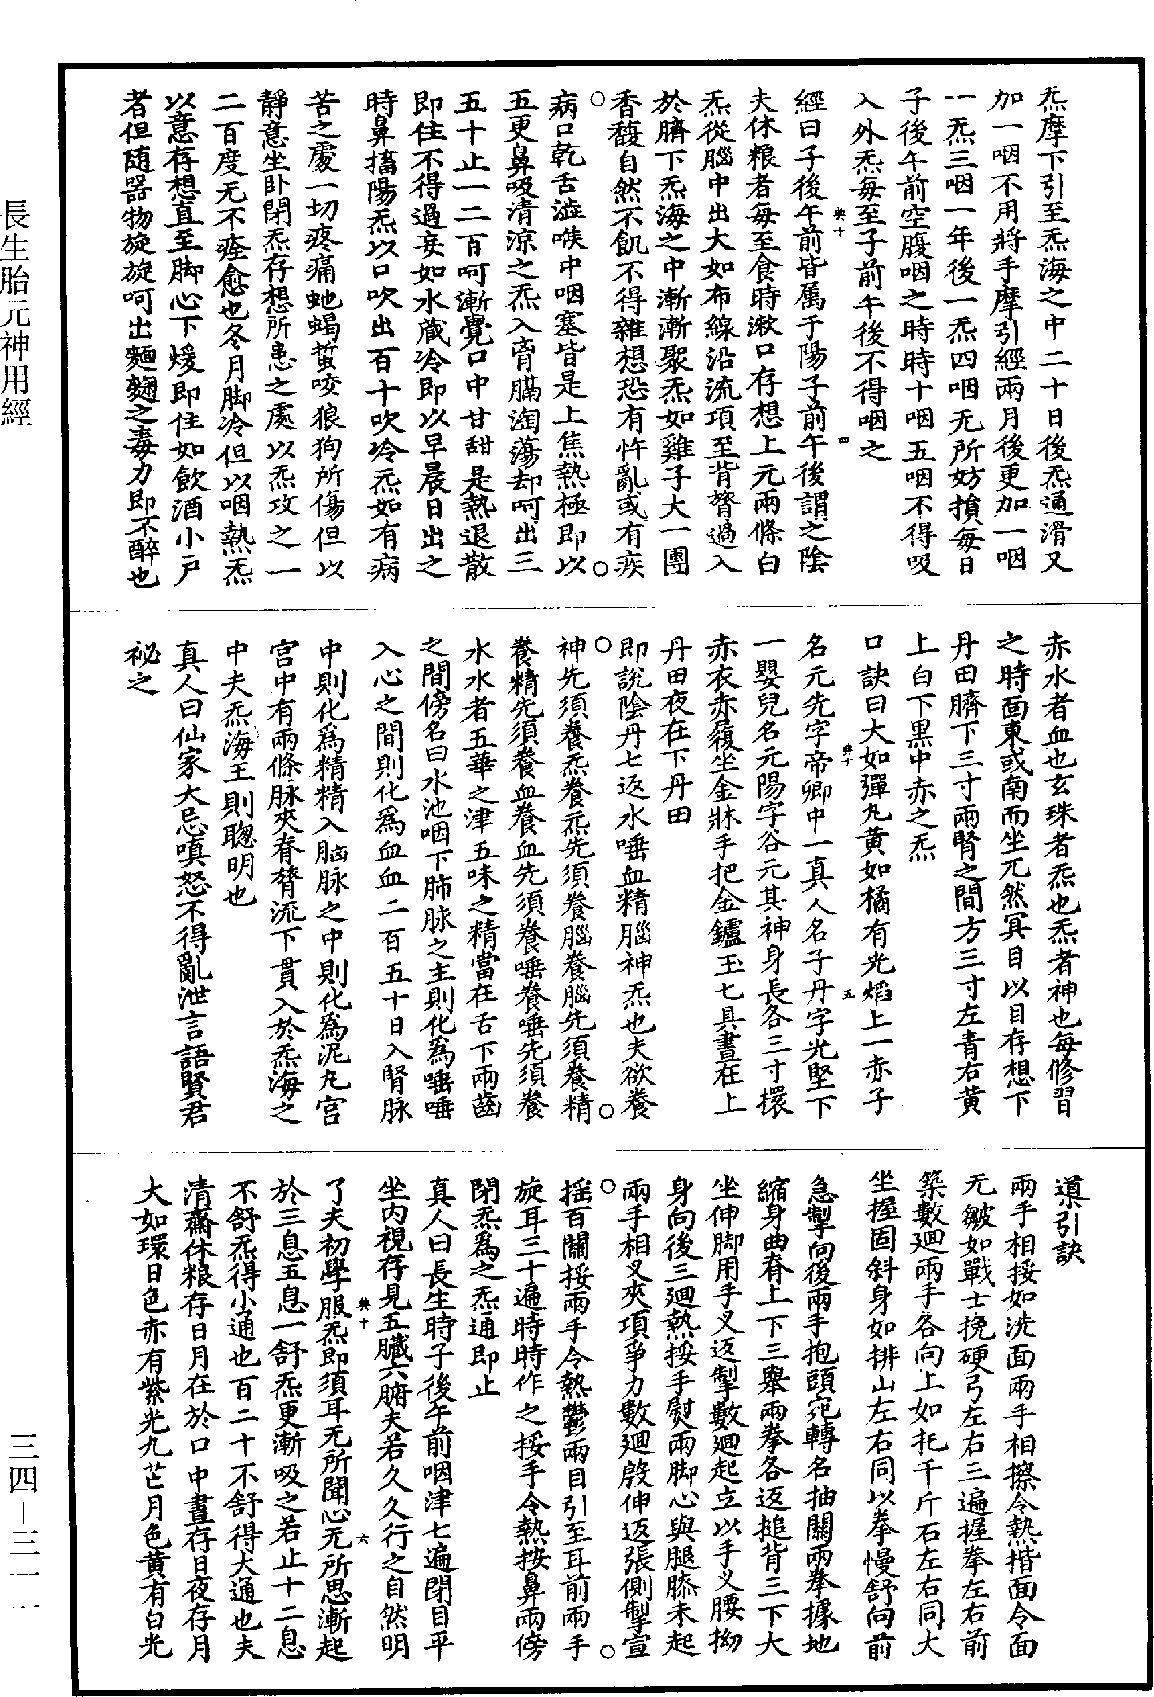 長生胎元神用經
三四—三一一
炁摩下引至炁海之中二十日後炁通滑又
加一咽不用將手摩引經兩月後更加一咽
一炁三咽一年後一炁四咽无所妨損每日
子後午前空腹咽之時時十咽五咽不得吸
入外炁每至子前午後不得咽之
經曰子後午前皆属于陽子前午後謂之陰
典十
四
夫休粮者每至食時漱口存想上元兩條白
炁從腦中出大如布線沿流項至背膂過入
於臍下炁海之中漸漸聚炁如雞子大一團
香馥自然不飢不得雜想恐有忤亂或有疾
病口乾舌澁喉中咽塞皆是上焦熱極即以
五更鼻吸清凉之炁入膏膈淘蕩却呵出三
五十止一二百呵漸覺口中甘甜是熱退散
即住不得過妄如水藏冷即以早晨日出之
時鼻擂陽炁以口吹出百十吹冷炁如有病
苦之處一切疼痛虵蝎蜇咬狼狗所傷但以
静意坐卧閉炁存想所患之處以炁攻之一
二百度无不痊愈也冬月脚冷但以咽熱炁
以意存想直至脚心下煖即住如飲酒小户
者但随器物旋旋呵出麵麴之毒力即不醉也
赤水者血也玄珠者炁也炁者神也每修習
之時面東或南而坐兀然冥目以目存想下
丹田臍下三寸兩腎之間方三寸左青右黄
上白下黒中赤之炁
口訣曰大如彈丸黄如橘有光熖上一赤子
典十
五
名元先字帝卿中一真人名子丹字光堅下
一嬰兒名元陽字谷元其神身長各三寸擐
赤衣赤履坐金牀手把金鑪玉匕具晝在上
丹田夜在下丹田
即說陰丹七返水唾血精腦神炁也夫欲養
神先須養炁養炁先須養腦養腦先須養精
養精先須養血養血先須養唾養唾先須養
水水者五華之津五味之精當在舌下兩齒
之間傍名曰水池咽下肺脉之主則化為唾唾
入心之間則化為血血二百五十日入腎脉
中則化為精精入脳脉之中則化為泥丸宫
宫中有兩條脉夾脊膂流下貫入於炁海之
中夫炁海王則聰明也
真人曰仙家大忌嗔怒不得亂泄言語賢君
祕之
導引訣
兩手相挼如洗面兩手相擦令熱揩面令面
无皺如戰士挽硬弓左右三遍握拳左右前
築數廻兩手各向上如托千斤石左右同大
坐握固斜身如排山左右同以拳慢舒向前
急掣向後兩手抱頭宛轉名抽關兩拳據地
縮身曲脊上下三舉兩拳各返搥背三下大
坐伸脚用手叉返掣數廻起立以手叉腰拗
身向後三廻熱挼手熨兩脚心與腿膝未起
兩手相叉夾項爭力數廻殷伸返張側掣宣
揺百關挼兩手令熱鬱兩目引至耳前兩手
旋耳三十遍時時作之挼手令熱按鼻兩傍
閉炁為之炁通即止
真人曰長生時子後午前咽津七遍閉目平
坐内視存見五臟六腑夫若久久行之自然明
了夫初學服炁即須耳无所聞心无所思漸起
典十
六
於三息五息一舒炁更漸吸之若止十二息
不舒炁得小通也百二十不舒得大通也夫
清齋休粮存日月在於口中晝存日夜存月
大如環日色赤有紫光九芒月色黄有白光